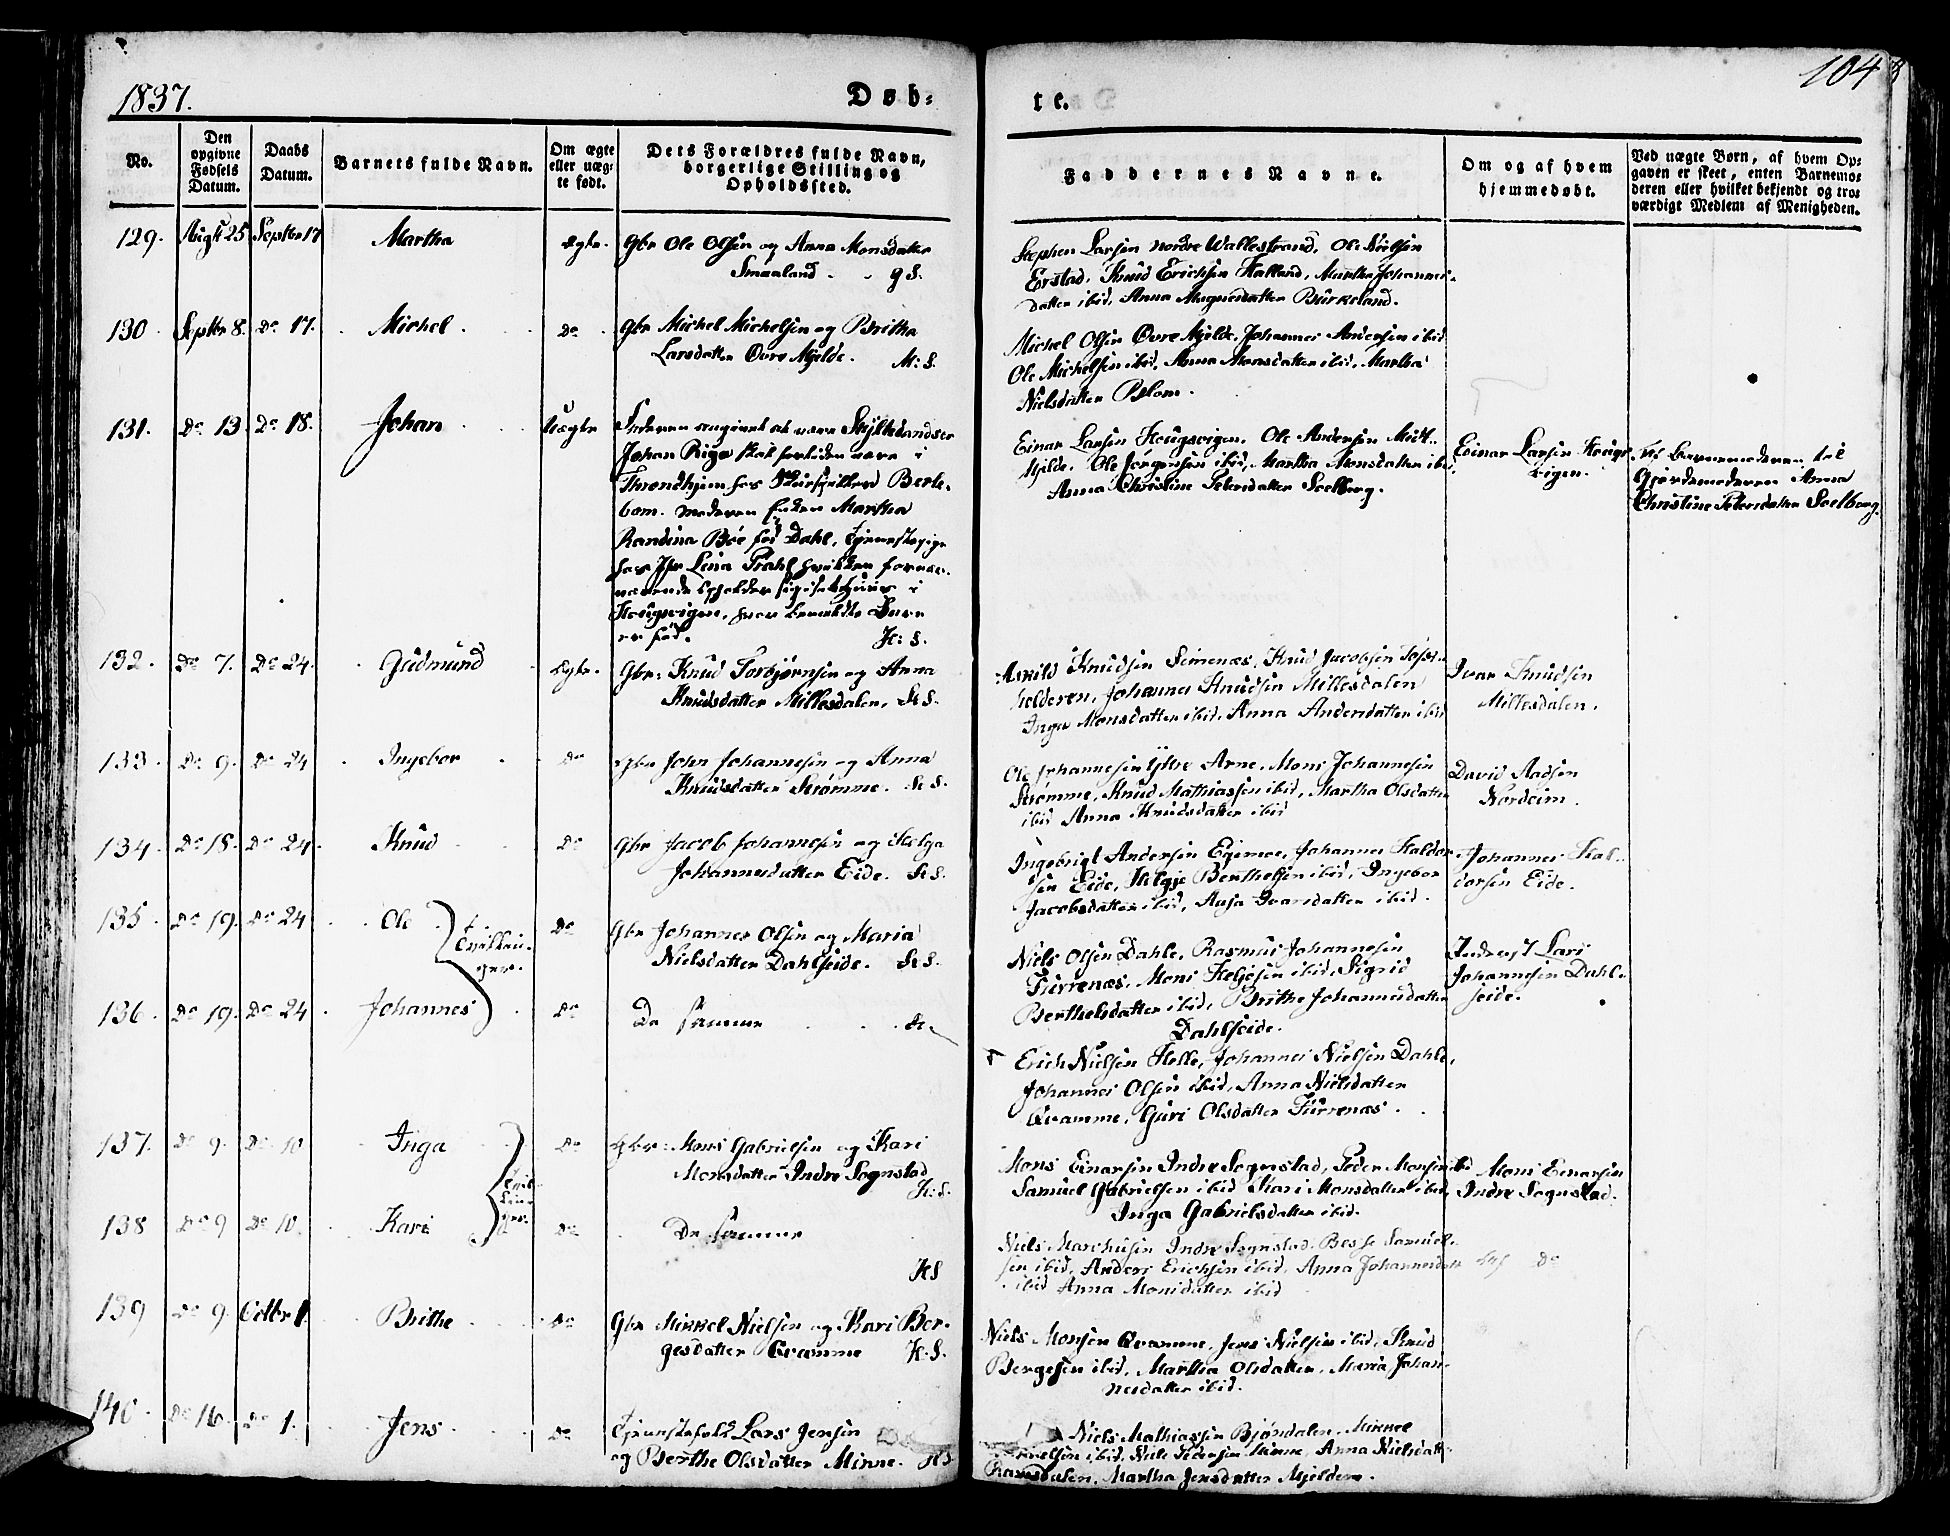 1837.
Døb-
te.
104
No.
Den opgivne Fødsels Datum.
Daabs Datum.
Barnets fulde Navn.
Om ægte eller uægte født.
Dets Forældres fulde Navn, borgerlige Stilling og Opholdssted.
Faddernes Navne.
Om og af hvem hjemmedøbt.
Ved uægte Børn, af hvem Opgaven er skeet, enten Barnemoderen eller hvilket bekjendt og troværdigt Medlem af Menigheden.
129. Augst 25 Septbr 17 Martha Egte. Gbr Ole Olsen og Anna Monsdatter
Smaaland. g S.
Stephen Larsen nordre Wallestrand, Ole Nielsen
Erstad, Knud Erichsen Halland, Martha Johannes-
datter ibid, Anna Magnesdatter Birkeland.
130 Septbr 8. Do 17. Michel. Do Gbr Michel Michelsen og Britha
Larsdatter Øvre Mjelde. M: S.
Michel Olsen Øvre Mjelde, Johannes Andersen ibid
Ole Michelsen ibid, Anna Monsdatter ibid, Martha
Nielsdatter Blom.
131. Do 13 Do 18. Johan Uægte Faderen angivet at være
Johan Riga skal forhiden være i
Throndhjem hos Berle-
bom. Moderen Enken Martha
Randina Böe fød Dahl,
hos Lina Dahl hvilken fornæ-
værende opholder sig i i
Hougsvigen, hvor bemeldte Barn
er fød. H: S.
Einar Larsen Hougsvigen, Ole Andersen Midt-
Mjelde, Ole Jörgensen ibid, Martha Monsdatter ibid,
Anna Christine Petersdatter Soelberg.
Einar Larsen Hougs-
vigen.
Af Barnemoderen til
Gjordemoderen Anna
Christine Petersdatter Soelberg.
132. Do 7. Do 24. Gudmund Egte. Gbr: Knud Torbjørnsen og Anna
Knudsdatter Millesdalen. H S.
Arnild Knudsen Simenæs, Knud Jacobsen
Johannes Knudsen Millesdalen
Inga Monsdatter ibid, Anna Andersdatter ibid
Ivar Knudsen
Millesdalen.
133. Do 9. Do 24 Ingebor Do Gbr John Johannesen og Anna
Knudsdatter Strømme. H S.
Ole Johannesen Ytre Arne, Mons Johannesen
Strømme, Knud Mathiassen ibid, Martha Olsdatter
ibid Anna Knudsdatter ibid
David Aadsen
Nordeim.
134. Do 18. Do 24. Knud Do Gbr Jacob Johannesen og Helga
Johannesdatter Eide. H S.
Ingebrigt Andersen Egernæs, Johannes Haldor-
sen Eide, Helgje Berthelsen ibid, Ingebor
Jacobsdatter ibid, Aasa Ivarsdatter ibid.
Johannes Hal-
dorsen Eide.
135 Do 19. Do 24 Ole Do Gbr Johannes Olsen og Maria
Nielsdatter Dahlseide. H S.
Tvillin-
ger.
Niels Olsen Dahle, Rasmus Johannesen
Furrenæs, Mons Heljesen ibid, Sigrid
Berthelsdatter ibid, Brithe Johannesdatter
Dahlseide.
Indrest Lars
Johannesen Dahl-
seide.
136. Do 19. Do 24 Johannes Do De samme H.
Erich Nielsen Helle, Johannes Nielsen Dahle,
Johannes Olsen ibid, Anna Nielsdatter
Qvamme, Guri Olsdatter Furrenæs.
137. Do 9. Do 10 Inga Do Gbr: Mons Gabrielsen og Kari
Monsdatter Indre Sognstad
H: S.
Tvil-
lin-
ger.
Mons Einarsen Indre Sognstad, Peder Monsen ibid
Samuel Gabrielsen ibid Kari Monsdatter ibid,
Inga Gabrielsdatter ibid.
Mons Einarsen
Indre Sognstad.
138 Do 9 Do 10. Kari Do De samme
H S
Niels Marchusen Indre Sognstad, Besse Samuel-
sen ibid, Anders Erichsen ibid, Anna Johannesdatt
ibid Anna Monsdatter ibid
Do
139 Do 9. Octbr 1. Brithe Do Gbr Mikkel Nielsen og Kari Ber-
gesdatter Qvamme H. S.
Niels Monsen Qvamme, Jens Nielsen ibid, Knud
Bergesen ibid, Martha Olsdatter, Maria Johan-
nesdatter ibid.
140. Do 16. Do 1. Jens Do Tjenestefolk Lars Jensen
og Berthe Olsdatter Minne. H S
Niels Mathiassen Bjöndalen, Mikkel
Nielsen ibid, Niels Pedersen Minne, Anna Nielsdatt-
Ramsdalen, Martha Jensdatter Mjelden.